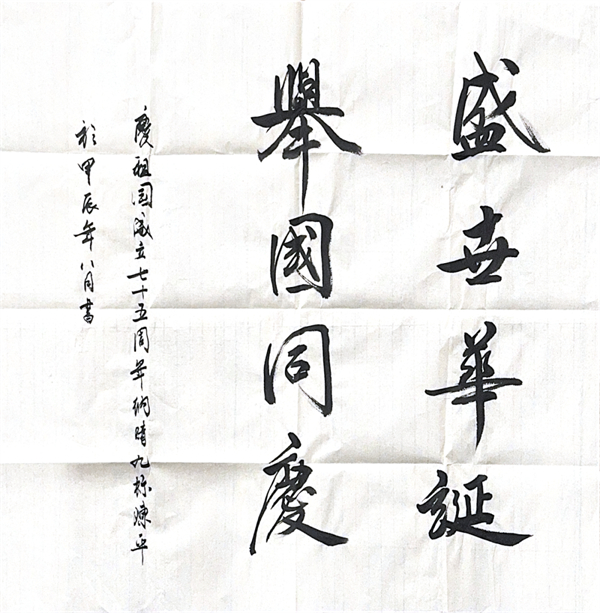 盛世華誕
舉國同慶
慶祖国成立七十五周年
於甲辰年八月書